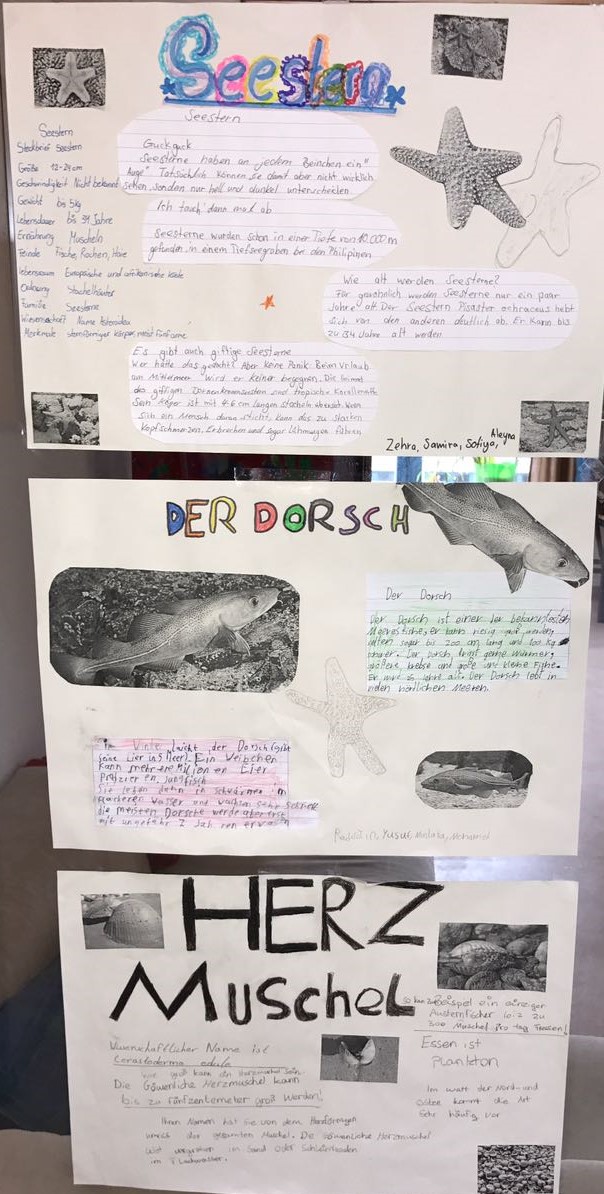 Seestern
Seestern
Steckbrief Seestern
Größe 12-24cm
Geschwindigkeit Nicht bekannt
Gewicht bis 5kg
Lebensdauer bis 34 Jahre
Ernährung Muscheln
Feinde Fische, Rochen, Haie
lebensraum Europäische und afrikanische küste
Ordnung Stachelhäuter
Familie Seesterne
Wissenschaft Name Asteroidea
Merkmale sternförmiger körper, meist fünfarme
Seestern
Guckguck
Seesterne haben an jedem Beinchen ein "
Auge" Tatsächlich können sie damit aber nicht wirklich
sehen, sondern nur hell und dunkel unterscheiden.
Ich tauch' dann mal ab
Seesterne wurden schon in einer Tiefe von 10.000 m
gefunden, in einem Tiefseegraben bei den Philipinen
Wie alt werden Seesterne?
Für gewöhnlich werden Seesterne nur ein paar
Jahre alt. Der Seestern Pisaster ochraceus hebt
sich von den anderen deutlich ab. Er kann bis
zu 34 Jahre alt werden
Es gibt auch giftige Seesterne
Wer hätte das gedacht? Aber keine Panik. Beim Urlaub
am Mittelmeer wird er keiner begegnen. Die Heimat
des giftigen Dornenkronenseestern sind tropische Korallenriffe.
Sein Körper ist mit 4-6 cm langen stacheln übersät. Wenn
sich ein Mensch daran sticht, kann das zu starken
Kopfschmerzen, Erbrechen und sogar Lähmungen führen
Zehra, Samira, Sofiya, Aleyna
DER DORSCH
Der Dorsch
Der Dorsch ist einer der bekanntesten
Meeresfische, er kann riesig groß werden,
sogar bis 200 cm lang und 100 kg
schwer. Der Dorsch frisst gerne Würmer,
krebse und große und kleine Fische.
Er wird 25 Jahre alt. Der Dorsch lebt in
nden nördlichen Meeren.
Winter laicht der Dorsch (gibt
seine Eier ins Meer). Ein Weibchen
kann mehrere Million en Eier
Sie leben dann in schwärmen im
Wasser und wachsen sehr schnell
die meisten Dorsche werde aber erst
mit ungefähr 2 Jah ren erwa n
Yusuf, Mohamed
HERZ
MuscheL
Cerastoderma edule
wie groß kann ein Herzmuschel sein
Die Gewöhnliche Herzmuschel kann
bis zu fünfzentemeter groß Werden!
So kan zum Beispiel ein einziger
Austernfischer bis zu
300 Muschel pro tag fressen!
Essen ist
Plankton
Im watt der Nord- und
Ostsee kommt die Art
Sehr häufig vor
Ihren Namen hat sie von dem Herzförmigen
der gesamten Muschel. Die Herzmuschel
im Sand oder